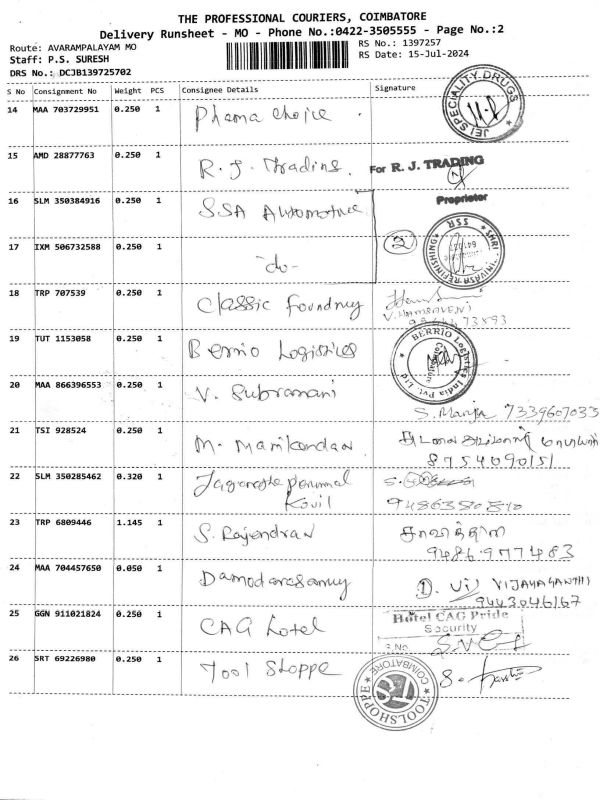 THE PROFESSIONAL COURIERS, COIMBATORE
Delivery Runsheet - MO - Phone No.:0422-3505555 - Page No.:2
Route: AVARAMPALAYAM MO
RS No.: 1397257
Staff: P.S. SURESH
RS Date: 15-Jul-2024
DRS No.: DCJB139725702
S No Consignment No Weight PCS Consignee Details Signature
14 MAA 703729951 0.250 1 Phama choice
JEI SPECIALITY DRUGS
15 AMD 28877763 0.250 1 R. J. Trading.
For R. J. TRADING
Proprietor
16 SLM 350384916 0.250 1 SSA Automotive
17 IXM 506732588 0.250 1 -do-
2
SSR SHRI REFINISHING
18 TRP 707539 0.250 1 Classic foundry
19 TUT 1153058 0.250 1 Berrio Logistics
BERRIO Logistics India Pvt. Ltd
20 MAA 866396553 0.250 1 V. Subramani
S. Manju 7339607033
21 TSI 928524 0.250 1 M. Manikandan
8754090151
22 SLM 350285462 0.320 1 Jaganatha perumal
Kovil
9486380840
23 TRP 6809446 1.145 1 S. Rajendran
சாவித்திரி
9486977483
24 MAA 704457650 0.050 1 Damodarasamy
1. VIJAYAGANTHI
9443046167
25 GGN 911021824 0.250 1 CAG hotel
Hotel CAG Pride
Security
S.No.
26 SRT 69226980 0.250 1 Tool Shoppe
TOOLSHOPPE COIMBATORE
TS